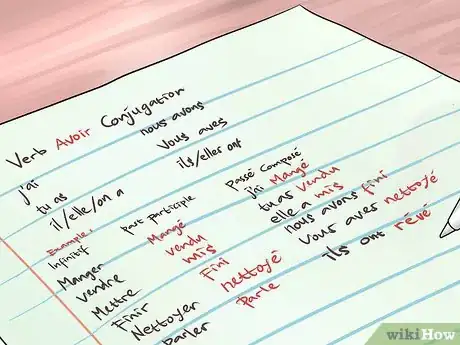 Verb Avoir Conjugation
j'ai nous avons
tu as Vous aves
il/elle/on a ils/eller ont
Example,
Infinitif past participle Passé Composé
Manger Mangé j'ai Mangé
vendre vendu tu as vendu
Mettre mis elle a mis
Finir Fini nous avons fini
Nettoyer nettoyé vous aver nettoyé
Parler parle ils ont rêvé
wikiHow